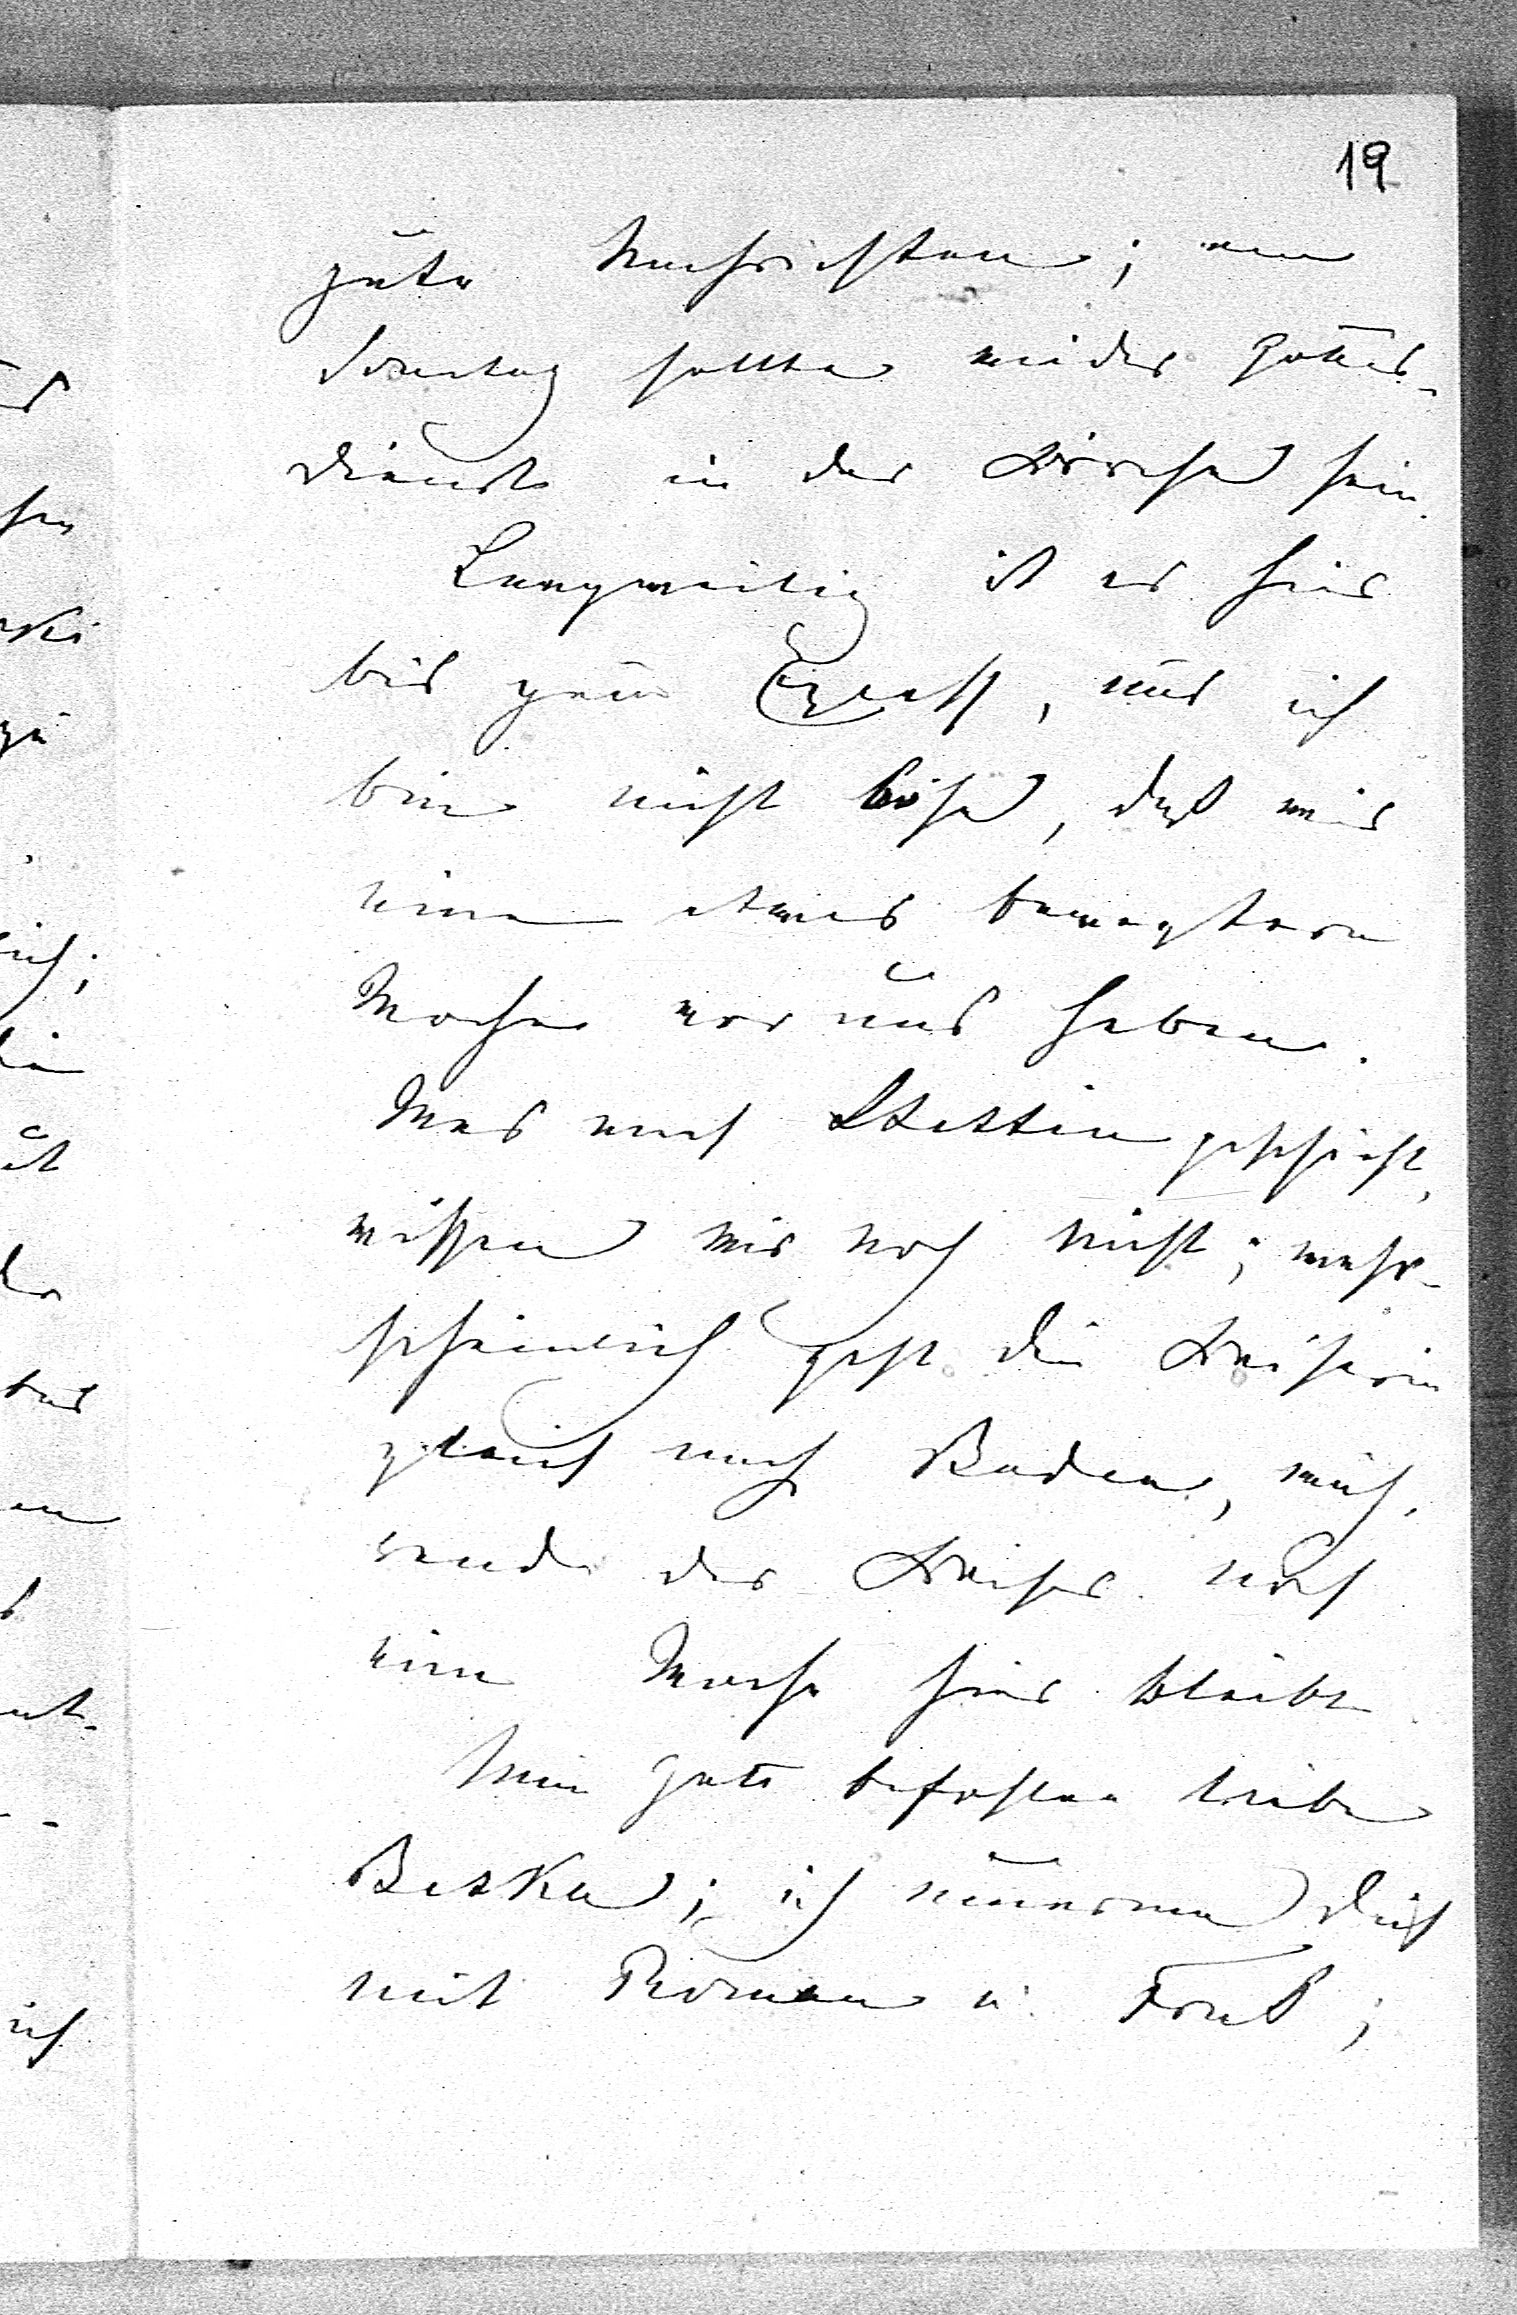 19
gute Nachrichten; am
Sonntag sollte wieder Gottes-
dienst in der Kirche sein.
Langweilig ist es hier
bis zum Exceß, und ich
bin nicht böse, daß wir
eine etwas bewegtere
Woche vor uns haben.
Was nach Stettin geschieht,
wissen wir noch nicht; wahr-
scheinlich geht die Kaiserin
gleich nach Baden, wäh-
rend der Kaiser noch
eine Woche hier bleibt.
Nun Gott befohlen liebe
Betka; ich umarme Dich
mit Roman u.